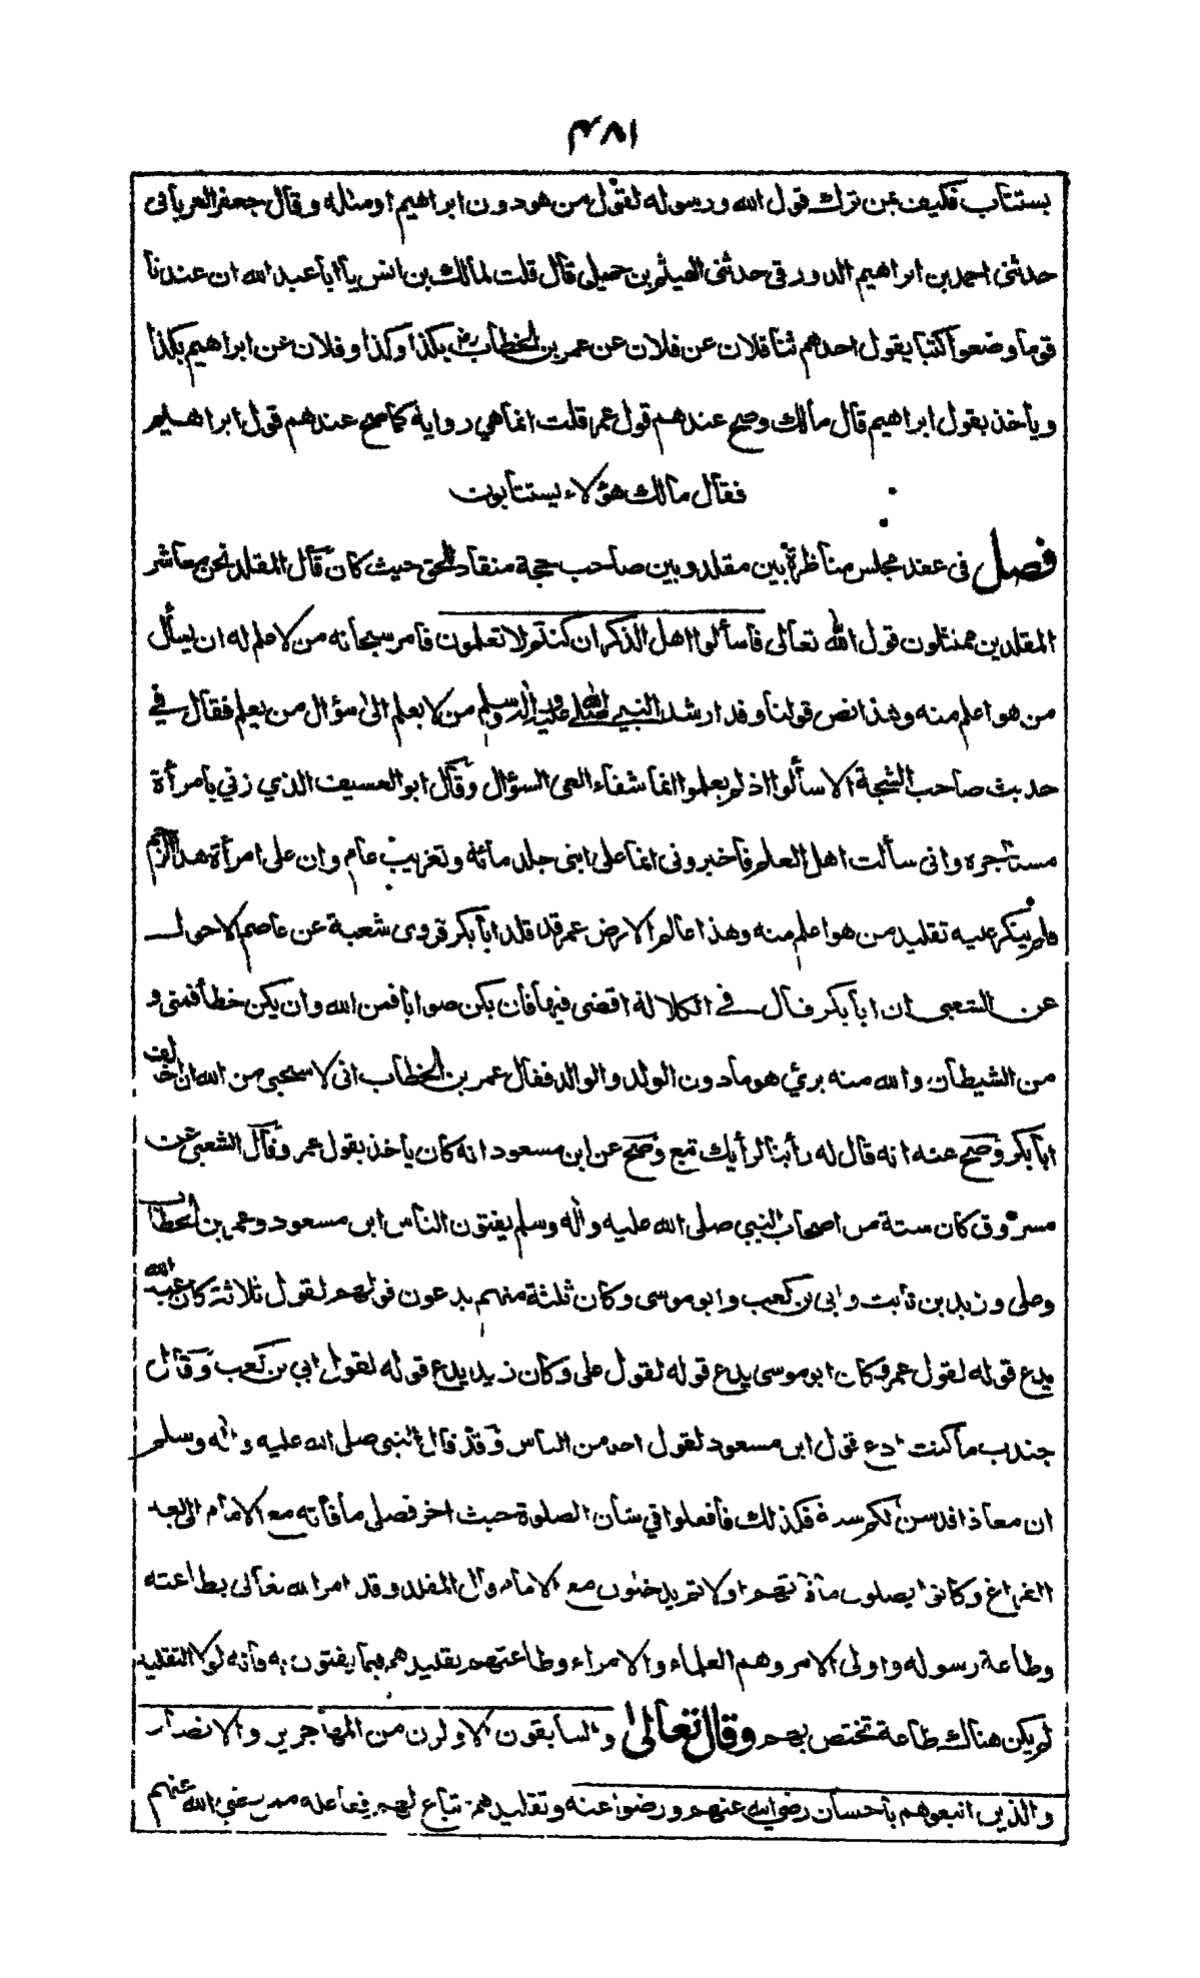 ٤٨١
يستتاب فكيف بمن ترك قول الله ورسوله لقول من هو دون ابراهيم او مثله وقال جعفر الفريابى
حدثنى احمد بن ابراهيم الدورقى حدثنى الهيثم بن جميل قال قلت لمالك بن انس يا ابا عبد الله ان عندنا
قوما وضعوا كتبا يقول احدهم ثنا فلان عن فلان عن عمر بن الخطاب رض بكذا وكذا وفلان عن ابراهيم بكذا
وياخذ بقول ابراهيم قال مالك وصح عندهم قول عمر قلت انما هي رواية كما صح عندهم قول ابراهيم
فقال مالك هؤلاء يستتابون
فصل فى عقد مجلس مناظرة بين مقلد وبين صاحب حجة منقاد للحق حيث كان قال المقلد نحن معاشر
المقلدين ممتثلون قول الله تعالى فاسألوا اهل الذكر ان كنتم لا تعلمون فامر سبحانه من لا علم له ان يسأل
من هو اعلم منه وهذا نص قولنا وقد ارشد النبي صلى الله عليه وآله وسلم من لا يعلم الى سؤال من يعلم فقال في
حديث صاحب الشجة الا سألوا اذ لم يعلموا انما شفاء العى السؤال وقال ابو العسيف الذي زني بامرأة
مستاجره وانى سألت اهل العلم فاخبرونى انما على ابنى جلد مائة وتغريب عام وان على امرأة هذا الرجم
فلم ينكر عليه تقليد من هو اعلم منه وهذا عالم الارض عمر قد قلد ابا بكر فروى شعبة عن عاصم الاحول
عن الشعبى ان ابا بكر قال في الكلالة اقضى فيها فان يكن صوابا فمن الله وان يكن خطأ فمنى و
من الشيطان والله منه برئ هو ما دون الولد والوالد فقال عمر بن الخطاب انى لاستحيى من الله ان اخالف
ابا بكر وصح عنه انه قال له رأينا لرأيك تبع وصح عن ابن مسعود انه كان ياخذ بقول عمر وقال الشعبى عن
مسروق كان ستة من اصحاب النبي صلى الله عليه وآله وسلم يفتون الناس ابن مسعود وعمر بن الخطاب
وعلى وزيد بن ثابت وابى بن كعب وابو موسى وكان ثلثة منهم يدعون قولهم لقول ثلاثة كان عبد الله
يدع قوله لقول عمر وكان ابو موسى يدع قوله لقول على وكان زيد يدع قوله لقول ابي بن كعب وقال
جندب ما كنت ادع قول ابن مسعود لقول احد من الناس وقد قال النبى صلى الله عليه وآله وسلم
ان معاذا قد سن لكم سنة فكذلك فافعلوا في شان الصلوة حيث اخر فصلى ما فاته مع الامام الى بعد
الفراغ وكانوا يصلون ما فاتهم اولا ثم يدخلون مع الامام قال المقلد وقد امر الله تعالى بطاعته
وطاعة رسوله واولى الامر وهم العلماء والامراء وطاعتهم تقليدهم فيما يفتون به فانه لولا التقليد
لم يكن هناك طاعة تختص بهم وقال تعالى والسابقون الاولون من المهاجرين والانصار
والذين اتبعوهم باحسان رضي الله عنهم ورضوا عنه وتقليدهم اتباع لهم ففاعله ممن رضي الله عنهم